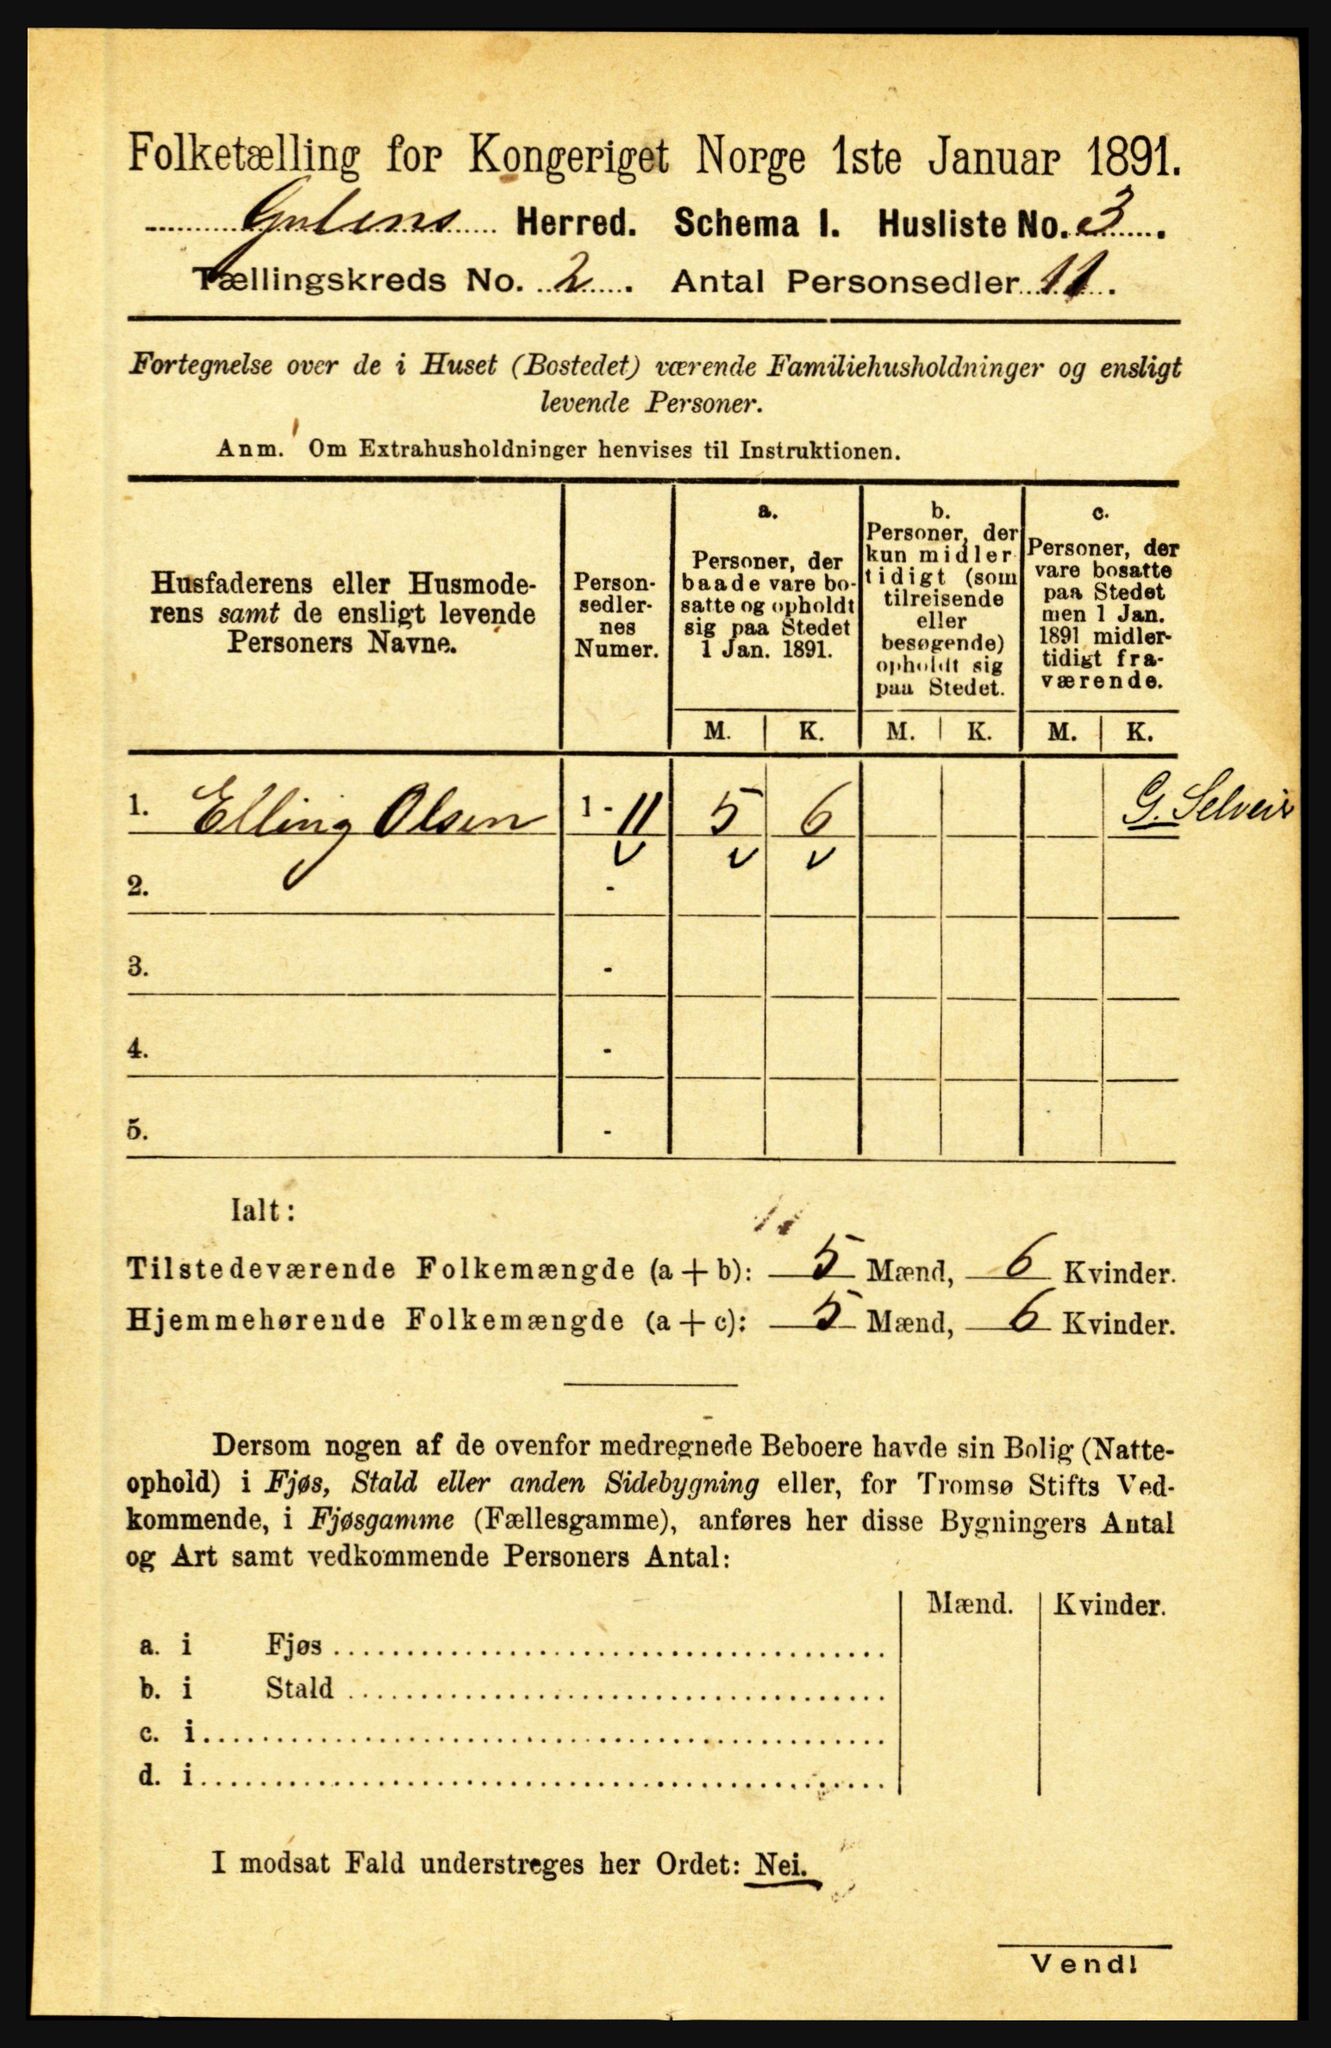 Folketælling for Kongeriget Norge 1ste Januar 1891.
Gulens Herred. Schema I. Husliste No. 3.
Tællingskreds No. 2. Antal Personsedler 11.
Fortegnelse over de i Huset (Bostedet) værende Familiehusholdninger og ensligt
levende Personer.
Anm. Om Extrahusholdninger henvises til Instruktionen.
Husfaderens eller Husmode-
rens samt de ensligt levende
Personers Navne.
Person-
sedler-
nes
Numer.
a.
Personer, der
baade vare bo-
satte og opholdt
sig paa Stedet
1 Jan. 1891.
b.
Personer, der
kun midler
tidigt (som
tilreisende
eller
besøgende)
opholdt sig
paa Stedet.
c.
Personer, der
vare bosatte
paa Stedet
men 1 Jan.
1891 midler-
tidigt fra-
værende.
M. K. M. K. M. K.
1. Elling Olsen 1 - 11 5 6 G. Selveir
2. -
3. -
4. -
5. -
Ialt:
11
Tilstedeværende Folkemængde (a + b): 5 Mænd, 6 Kvinder.
Hjemmehørende Folkemængde (a + c): 5 Mænd, 6 Kvinder.
Dersom nogen af de ovenfor medregnede Beboere havde sin Bolig (Natte-
ophold) i Fjøs, Stald eller anden Sidebygning eller, for Tromsø Stifts Ved-
kommende, i Fjøsgamme (Fællesgamme), anføres her disse Bygningers Antal
og Art samt vedkommende Personers Antal:
Mænd. Kvinder.
a. i Fjøs
b. i Stald
c. i
d. i
I modsat Fald understreges her Ordet: Nei.
Vend!